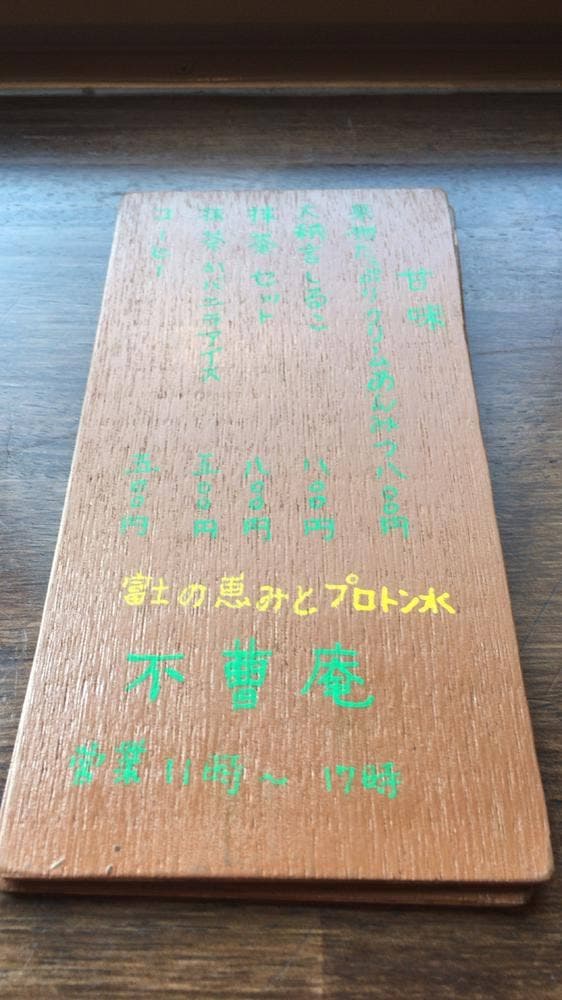 甘味
果物たっぷりクリームあんみつ 八〇〇円
大納言しるこ 八〇〇円
抹茶セット 八〇〇円
抹茶バニラアイス 五〇〇円
コーヒー 五〇〇円
富士の恵みとプロトン水
不曹庵
営業11時～17時